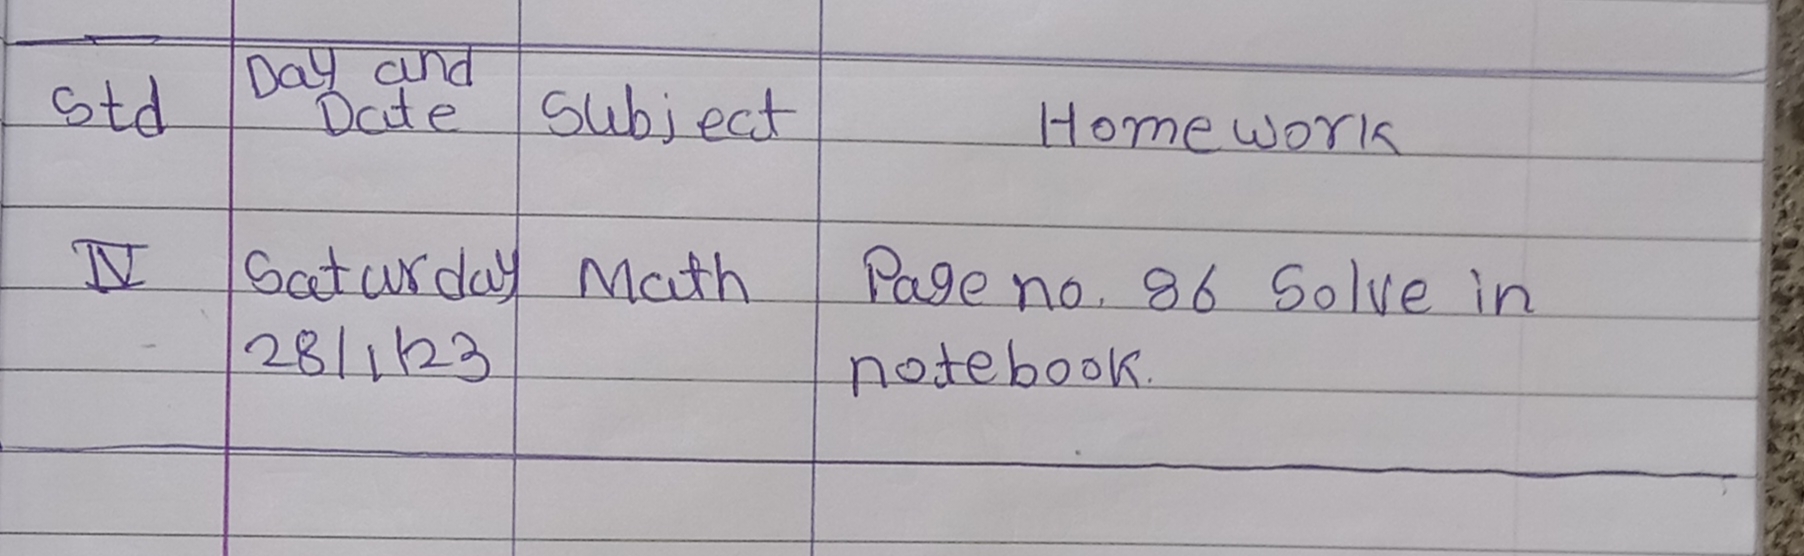 Std Day and Date Subject Homework
IV Saturday Math Page no. 86 Solve in
28/1/23 notebook.